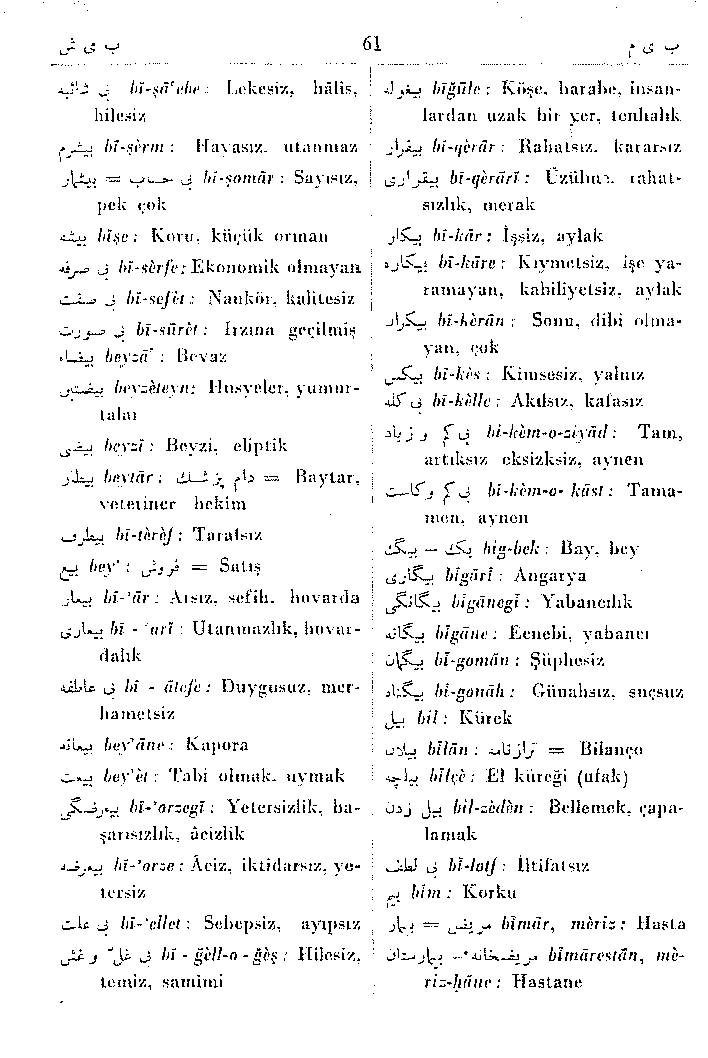 ب ی ش 61 ب ی م
بی شائبه bī-şā'ebe : Lekesiz, hâlis,
hilesiz
بیشرم bī-şèrm : Hayasız, utanmaz
بیشمار = بی حساب bī-şomār : Sayısız,
pek çok
بیشه bīşe : Koru, küçük orman
بی صرفه bī-sèrfe : Ekonomik olmayan
بی صفت bī-sefèt : Nankör, kalitesiz
بی صورت bī-sūrèt : Irzına geçilmiş
بیضاء beyzā' : Beyaz
بیضتین beyzèteyn : Husyeler, yumur-
talar
بیضی beyzī : Beyzi, eliptik
بیطار beytār : دام پزشك = Baytar,
veteriner hekim
بیطرف bī-tèrèf : Tarafsız
بیع bey' : فروش = Satış
بیعار bī-'ār : Arsız, sefih, hovarda
بیعاری bī - 'arī : Utanmazlık, hovar-
dalık
بی عاطفه bī - ātefe : Duygusuz, mer-
hametsiz
بیعانه bey'āne : Kapora
بیعت bey'èt : Tabi olmak, uymak
بیعرضگی bī-'orzegī : Yetersizlik, ba-
şarısızlık, âcizlik
بیعرضه bī-'orze : Âciz, iktidarsız, ye-
tersiz
بی علت bī-'ellet : Sebepsiz, ayıpsız
بی غل و غش bī - ğèll-o - ğèş : Hilesiz,
temiz, samimi
بیغوله bīğūle : Köşe, harabe, insan-
lardan uzak bir yer, tenhalık
بیقرار bī-qèrār : Rahatsız, kararsız
بیقراری bī-qèrārī : Üzülme, rahat-
sızlık, merak
بیکار bī-kār : İşsiz, aylak
بیکاره bī-kāre : Kıymetsiz, işe ya-
ramayan, kabiliyetsiz, aylak
بیکران bī-kèrān : Sonu, dibi olma-
yan, çok
بیکس bī-kès : Kimsesiz, yalnız
بی کله bī-kèlle : Akılsız, kafasız
بی کم و زیاد bī-kèm-o-ziyād : Tam,
artıksız eksizksiz, aynen
بی کم و کاست bī-kèm-o- kāst : Tama-
men, aynen
بیگ – بیک big-bek : Bay, bey
بیگاری bīgārī : Angarya
بیگانگی bīgānegī : Yabancılık
بیگانه bīgāne : Ecnebi, yabancı
بیگمان bī-gomān : Şüphesiz
بیگناه bī-gonāh : Günahsız, suçsuz
بیل bīl : Kürek
بیلان bīlān : ترازنامه = Bilanço
بیلچه bīlçè : El küreği (ufak)
بیل زدن bīl-zèdèn : Bellemek, çapa-
lamak
بی لطف bī-lotf : İltifatsız
بیم bīm : Korku
بیمار = مریض bīmār, mèrīz : Hasta
بیمارستان – مریضخانه bīmārestān, mè-
rīz-ḫāne : Hastane